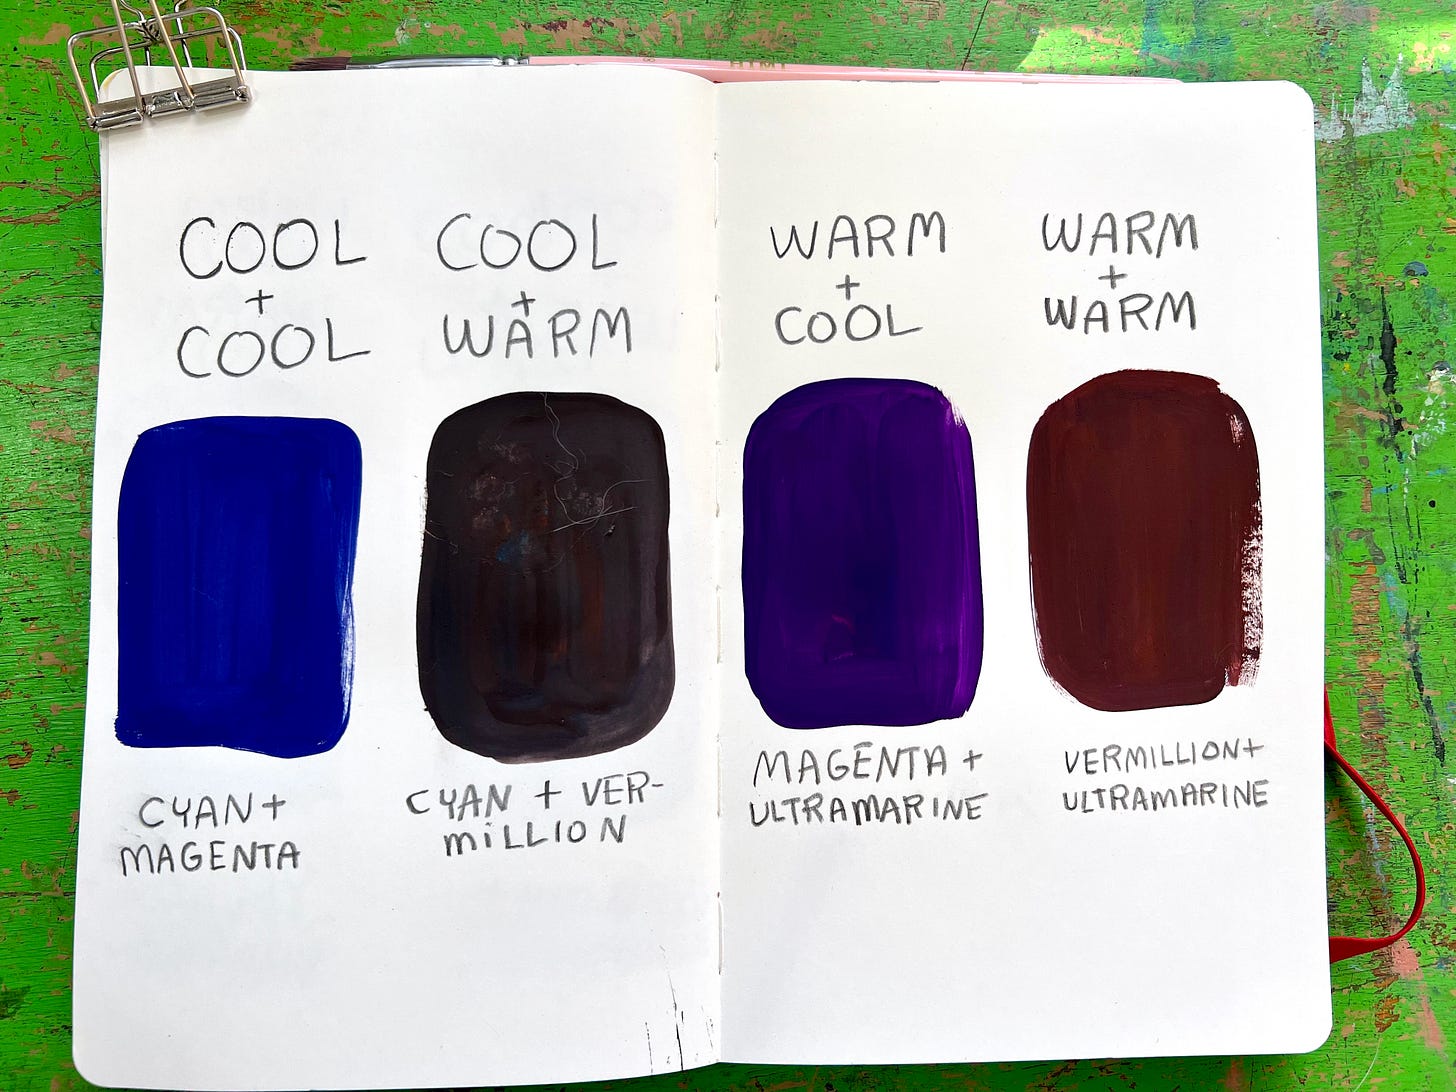 COOL
+
COOL
CYAN+
MAGENTA
COOL
+
WARM
CYAN + VER-
MiLLION
WARM
+
COOL
MAGENTA +
ULTRAMARINE
WARM
+
WARM
VERMILLION+
ULTRAMARINE